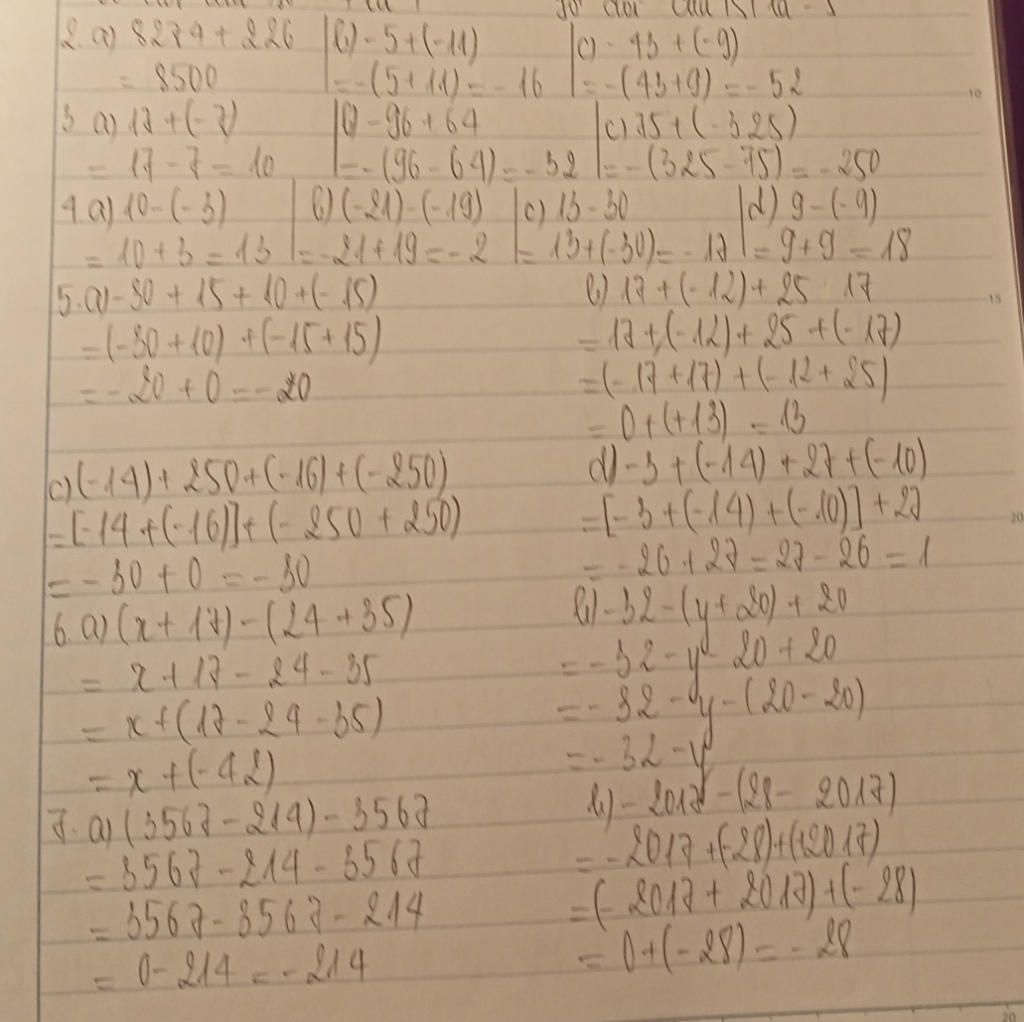 2. a) 8274 + 226 | b) - 5 + (-11) | c) - 43 + (-9)
= 8500 | = -(5 + 11) = - 16 | = -(43+9) = - 52
3 a) 17 + (-7) | b) - 96 + 64 | c) 75 + (- 325)
= 17 - 7 = 10 | = -(96 - 64) = - 32 | = - (325 - 75) = - 250
4. a) 10 - (- 3) | b) (-21) - (-19) | c) 13 - 30 | d) 9 - (-9)
= 10 + 3 = 13 | = - 21 + 19 = - 2 | = 13 + (-30) = - 17 | = 9 + 9 = 18
5. a) - 30 + 15 + 10 + (- 15)
= (-30 + 10) + (-15 + 15)
= - 20 + 0 = - 20
b) 17 + (-12) + 25 17
= 17 + (-12) + 25 + (- 17)
= (- 17 + 17) + (- 12 + 25)
= 0 + (+13) = 13
c) (-14) + 250 + (-16) + (- 250)
= [-14 + (-16)] + (- 250 + 250)
= - 30 + 0 = - 30
d) - 3 + (-14) + 27 + (-10)
= [- 3 + (-14) + (-10)] + 27
= - 26 + 27 = 27 - 26 = 1
6. a) (x + 17) - (24 + 35)
= x + 17 - 24 - 35
= x + (17 - 24 - 35)
= x + (- 42)
b) - 32 - (y + 20) + 20
= - 32 - y - 20 + 20
= - 32 - y - (20 - 20)
= - 32 - y
7. a) (3567 - 214) - 3567
= 3567 - 214 - 3567
= 3567 - 3567 - 214
= 0 - 214 = - 214
b) - 2017 - (28 - 2017)
= - 2017 + (-28) + (+2017)
= (- 2017 + 2017) + (- 28)
= 0 + (- 28) = - 28
10
15
20
20